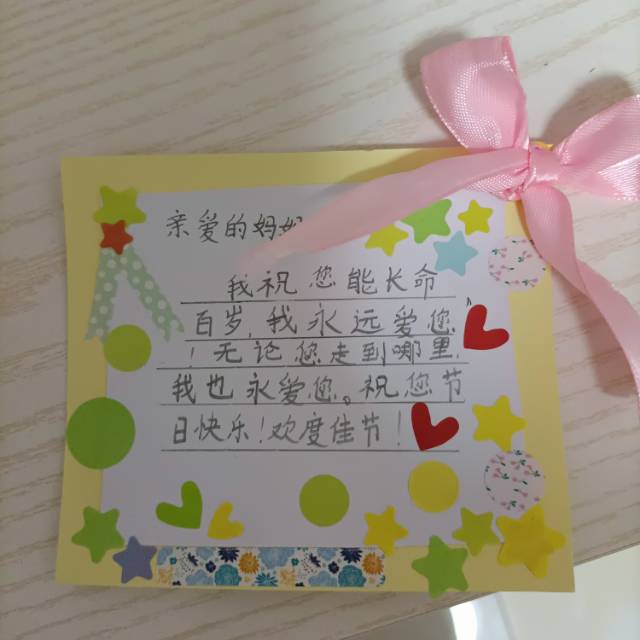 亲爱的妈妈
我祝您能长命
百岁,我永远爱您
！无论您走到哪里,
我也永爱您。祝您节
日快乐！欢度佳节！